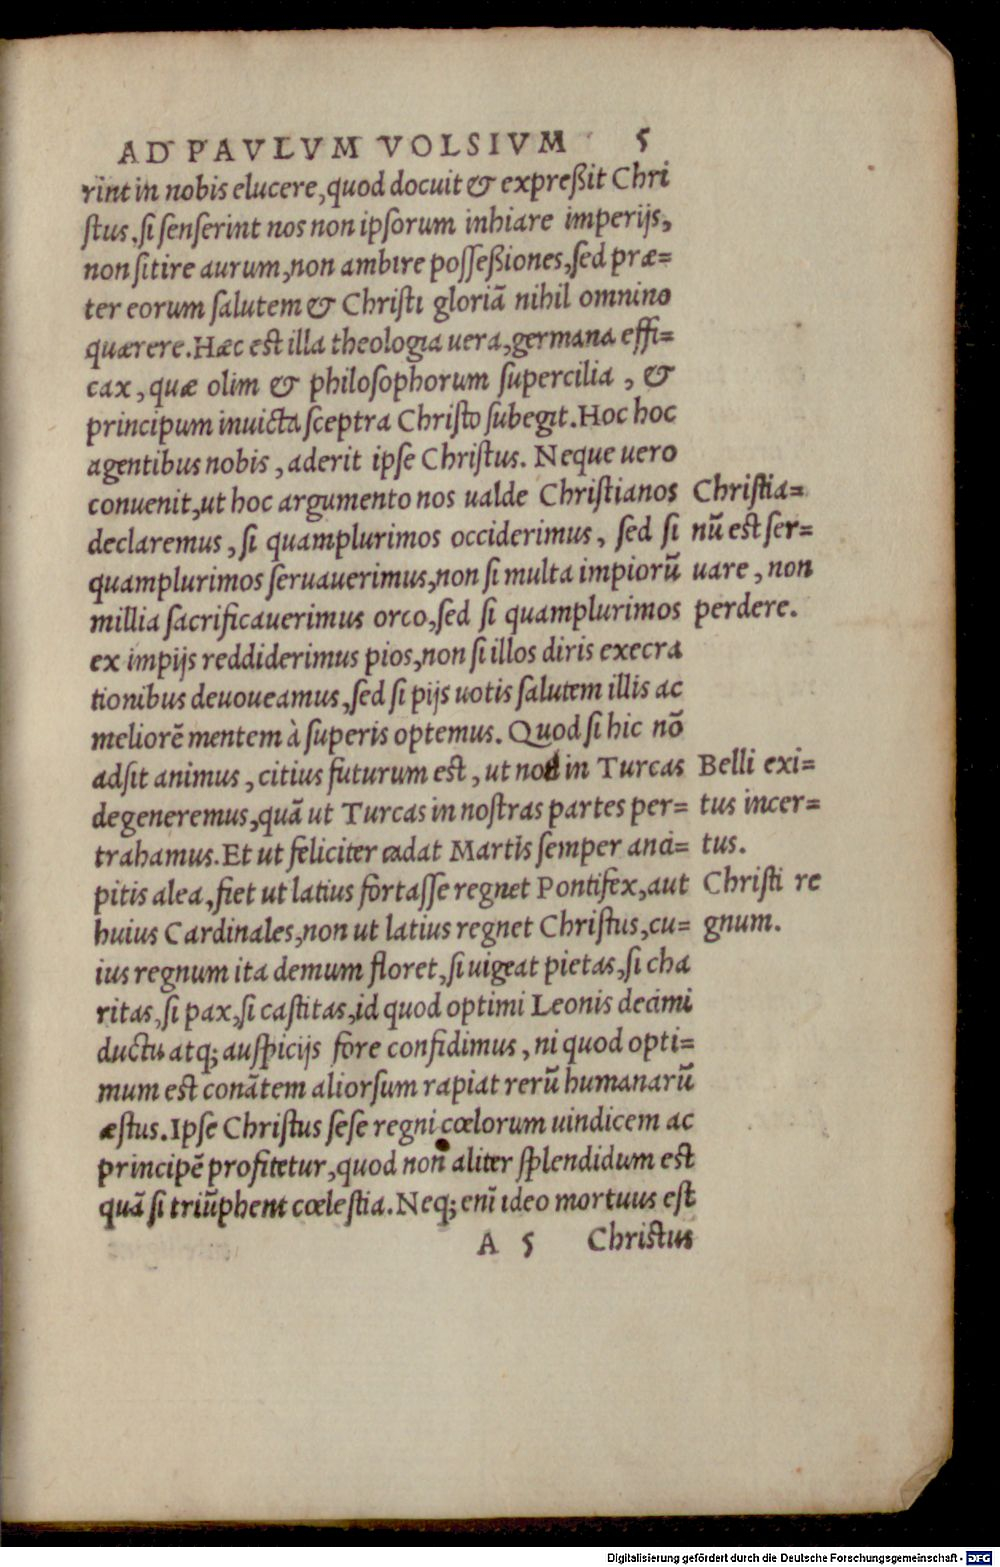 AD PAVLVM VOLSIVM 5
rint in nobis elucere, quod docuit & expreßit Chri
stus, si senserint nos non ipsorum inhiare imperijs,
non sitire aurum, non ambire posseßiones, sed præ=
ter eorum salutem & Christi gloriā nihil omnino
quærere. Hæc est illa theologia uera, germana effi=
cax, quæ olim & philosophorum supercilia, &
principum inuicta sceptra Christo subegit. Hoc hoc
agentibus nobis, aderit ipse Christus. Neque uero
conuenit, ut hoc argumento nos ualde Christianos
declaremus, si quamplurimos occiderimus, sed si
quamplurimos seruauerimus, non si multa impiorū
millia sacrificauerimus orco, sed si quamplurimos
ex impijs reddiderimus pios, non si illos diris execra
tionibus deuoueamus, sed si pijs uotis salutem illis ac
meliorē mentem à superis optemus. Quod si hic nō
adsit animus, citius futurum est, ut nos in Turcas
degeneremus, quā ut Turcas in nostras partes per=
trahamus. Et ut feliciter cadat Martis semper anci=
pitis alea, fiet ut latius fortasse regnet Pontifex, aut
huius Cardinales, non ut latius regnet Christus, cu=
ius regnum ita demum floret, si uigeat pietas, si cha
ritas, si pax, si castitas, id quod optimi Leonis decimi
ductu atq; auspicijs fore confidimus, ni quod opti=
mum est conātem aliorsum rapiat rerū humanarū
æstus. Ipse Christus sese regni cœlorum uindicem ac
principē profitetur, quod non aliter splendidum est
quā si triūphent cœlestia. Neq; enī ideo mortuus est
A 5 Christus
Christia=
nū est ser=
uare, non
perdere.
Belli exi=
tus incer=
tus.
Christi re
gnum.
Digitalisierung gefördert durch die Deutsche Forschungsgemeinschaft - DFG